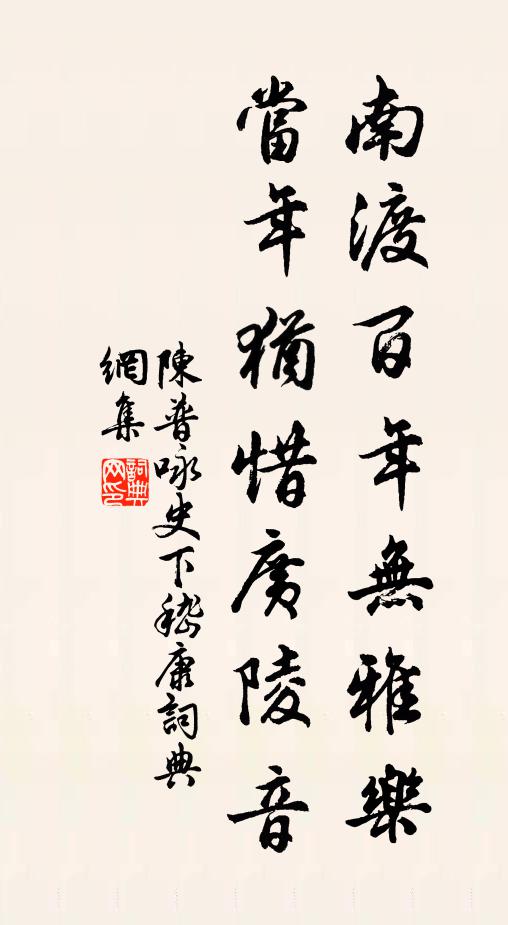 南渡百年無雅樂
當年猶惜廣陵音
陳普咏史下嵇康詞典
網集
詞典網印